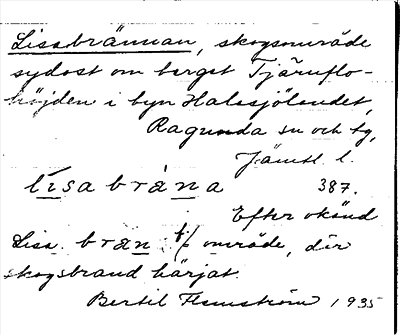 Lisabrännan, skogsområde
sydost om berget Tjäruflo-
höjden i byn Halasjölandet,
Ragunda sn och tg,
Jämtl. l.
lisabräna 387.
Efter okänd
Lisa. brän: t/ område, där
skogsbrand härjat.
Bertil Flemström 1935